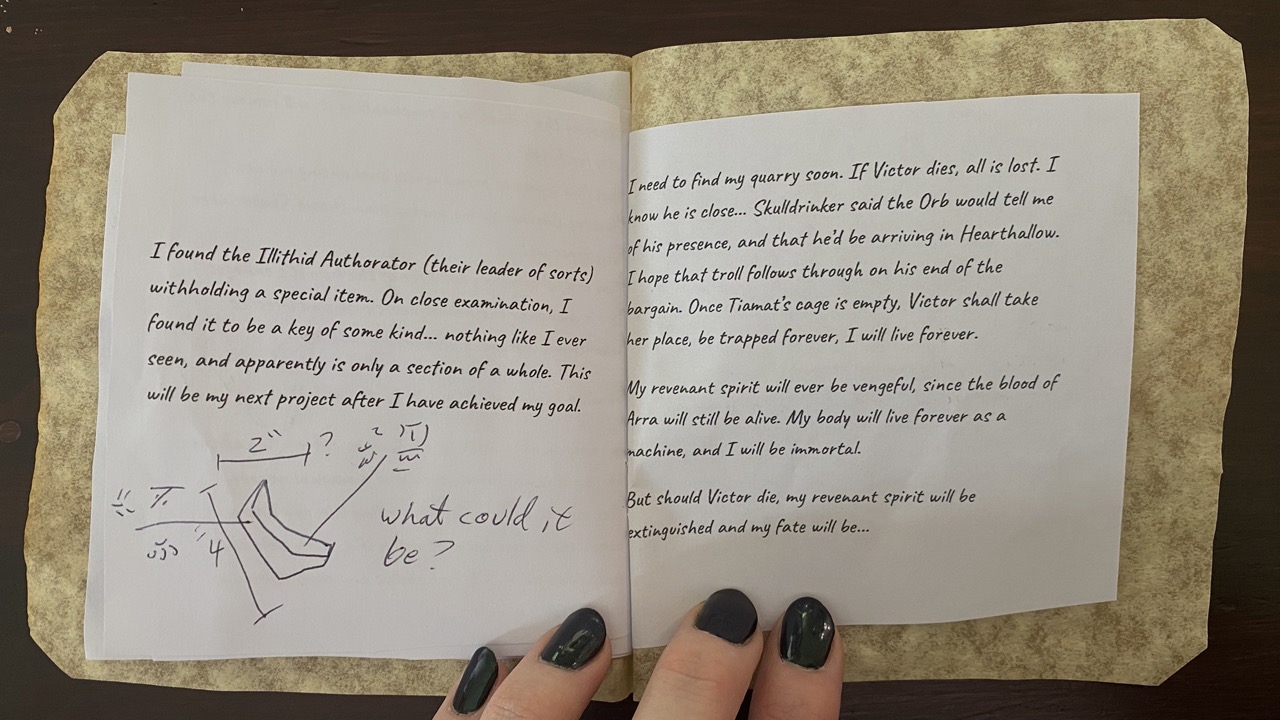 I found the Illithid Authorator (their leader of sorts)
withholding a special item. On close examination, I
found it to be a key of some kind... nothing like I ever
seen, and apparently is only a section of a whole. This
will be my next project after I have achieved my goal.
2" ?
4
what could it
be?
I need to find my quarry soon. If Victor dies, all is lost. I
know he is close... Skulldrinker said the Orb would tell me
of his presence, and that he'd be arriving in Hearthallow.
I hope that troll follows through on his end of the
bargain. Once Tiamat's cage is empty, Victor shall take
her place, be trapped forever, I will live forever.
My revenant spirit will ever be vengeful, since the blood of
Arra will still be alive. My body will live forever as a
machine, and I will be immortal.
But should Victor die, my revenant spirit will be
extinguished and my fate will be...